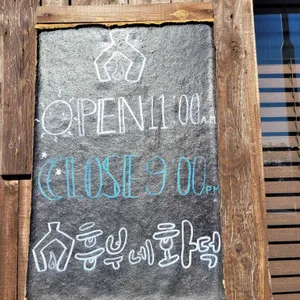 OPEN 11:00AM
CLOSE 9:00PM
흥부네화덕